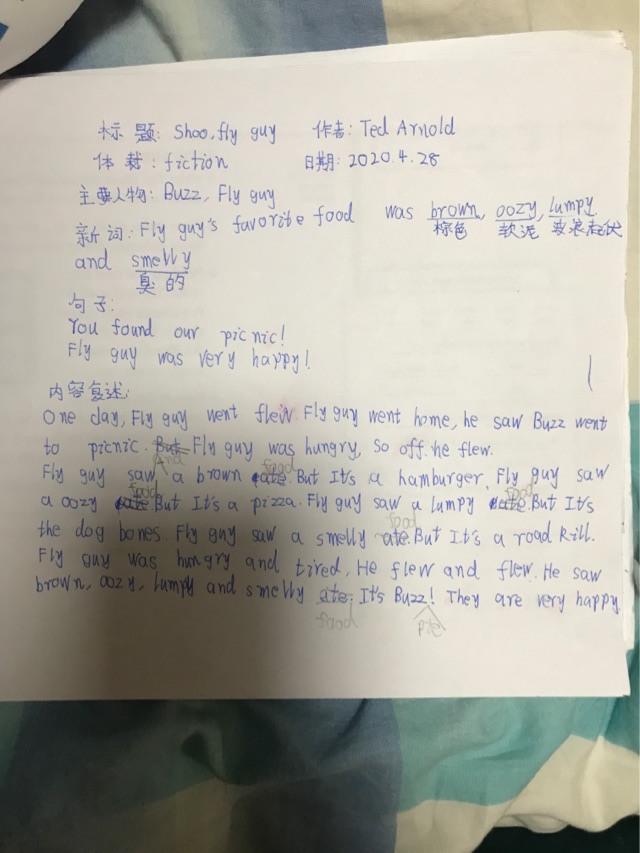 标 题: Shoo, fly guy 作者: Ted Arnold
体 裁: fiction 日期: 2020.4.28
主要人物: Buzz, Fly guy
新 词: Fly guy's favorite food was brown, oozy, lumpy
棕色 软泥 波浪起伏
and smelly
臭 的
句子:
You found our picnic!
Fly guy was very happy!
内容复述:
One day, Fly guy went flew. Fly guy went home, he saw Buzz went
to picnic. But Fly guy was hungry, So off he flew.
And
Fly guy saw a brown ate. But It's a hamburger. Fly guy saw
food
a oozy ate. But It's a pizza. Fly guy saw a lumpy ate. But It's
food food
the dog bones. Fly guy saw a smelly ate. But It's a road kill.
food
Fly guy was hungry and tired. He flew and flew. He saw
brown, oozy, lumpy and smelly ate. It's Buzz! They are very happy
food pie